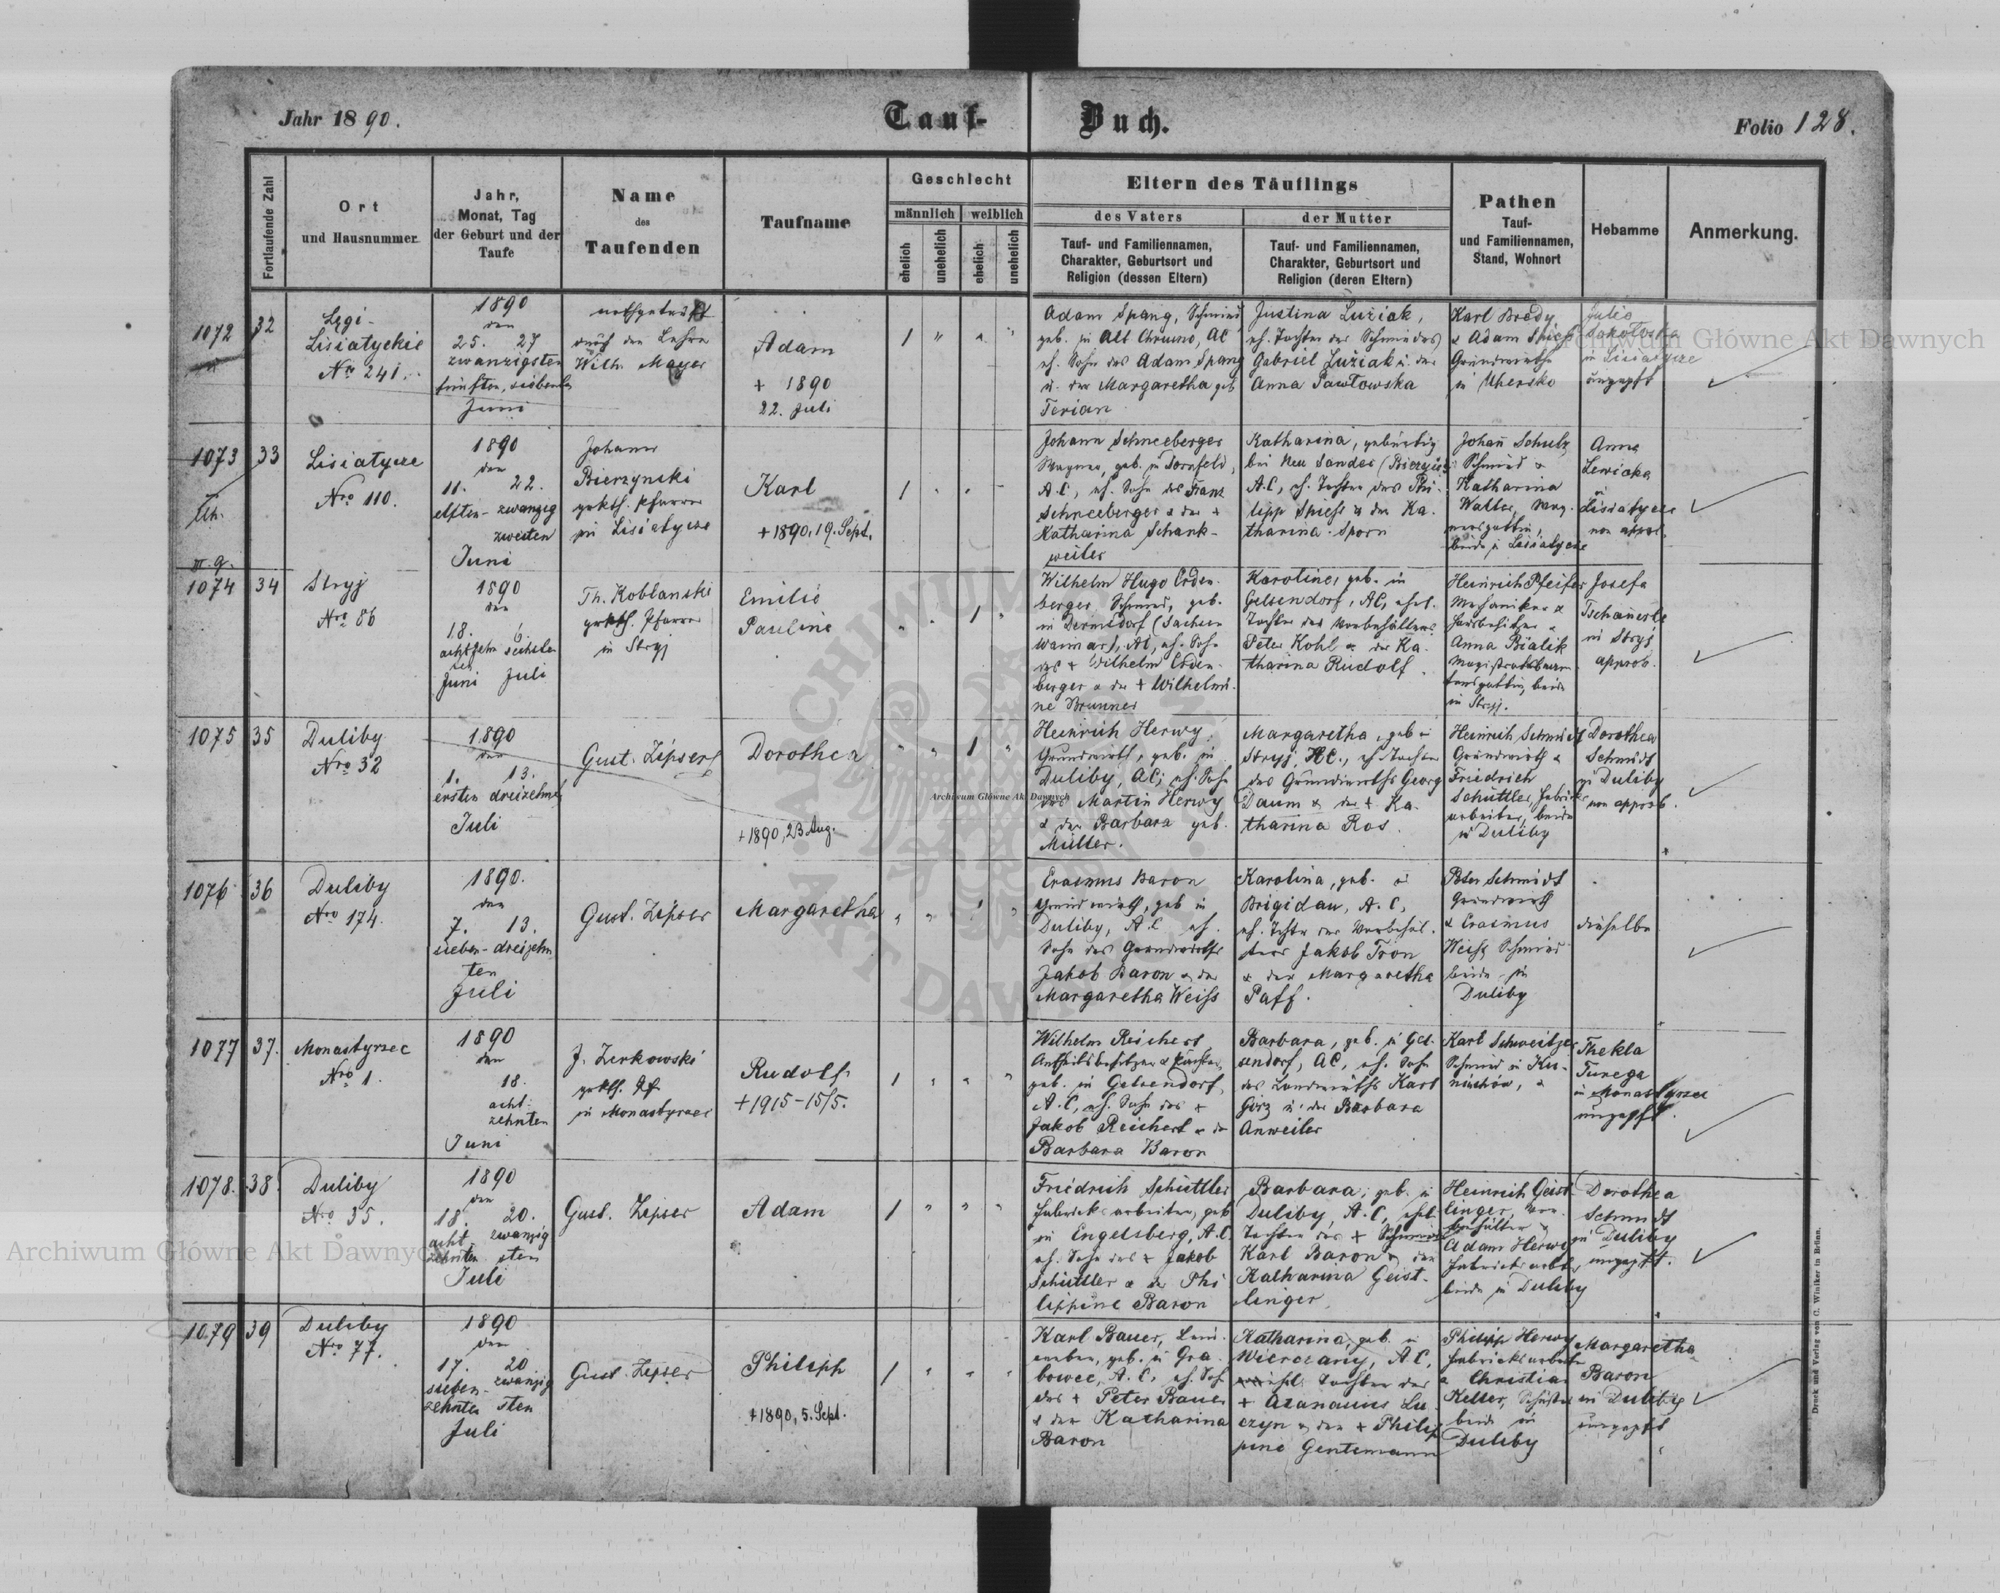 Jahr 1890.
Tauf-Buch.
Folio 128.
Fortlaufende Zahl
Ort
und Hausnummer
Jahr,
Monat, Tag
der Geburt und der
Taufe
Name
des
Taufenden
Taufname
Geschlecht
männlich
weiblich
ehelich
unehelich
ehelich
unehelich
Eltern des Täuflings
des Vaters
Tauf- und Familiennamen,
Charakter, Geburtsort und
Religion (dessen Eltern)
der Mutter
Tauf- und Familiennamen,
Charakter, Geburtsort und
Religion (deren Eltern)
Pathen
Tauf-
und Familiennamen,
Stand, Wohnort
Hebamme
Anmerkung.
1072
32
Lisiatyckie
Nro 241.
1890
den
25. 27
zwanzigsten
fünften, siebenten
Juni
nothgetauft
durch den Lehrer
Wilh. Mayer
Adam
+ 1890
22. Juli
Adam Spang, Schmied
geb. in Alt Chrusno, AC
eh. Sohn des Adam Spang
u. der Margaretha geb
Terian
Justina Luziak,
eh. Tochter des Schmiedes
Gabriel Luziak u. der
Anna Pawłowska
Karl Bredy
& Adam Spiess
Grundwirthe
in Uhersko
Julie
Sokołowska
in Lisiatycze
ungeprft
1073
33
Lisiatycze
Nro 110.
1890
den
11. 22.
elften - zwanzig
zweiten
Juni
Johann
Bierzynski
gr. kth. Pfarrer
in Lisiatycze
Karl
+1890, 19. Sept.
Johann Schneeberger
Wagner, geb. in Dornfeld,
A.C., eh. Sohn des Franz
Schneeberger & der +
Katharina Schank-
weiler
Katharina, gebürtig
bei Neu Sandec
A.C., eh. Tochter des Phi-
lipp Spiess & der Ka-
tharina Sporn
Johan Schulz
Schmied &
Katharina
Walter, Wag-
nersgattin,
beide in Lisiatycze
Anna
Lewicka
in
Lisiatycze
non approb.
1074
34
Stryj
Nro 86
1890
den
18. 6.
achtzehn sechsten
ten
Juni Juli
Th. Koblanski
gr. kth. Pfarrer
in Stryj
Emilie
Pauline
Wilhelm Hugo Erden-
berger, Schmied, geb.
in Dermsdorf (Sachsen
Waimar), AC, eh. Sohn
des + Wilhelm Erden-
berger & der + Wilhelmi-
ne Brunner
Karoline, geb. in
Gelsendorf, AC, ehel.
Tochter des Vorbehälters
Peter Kohl & der Ka-
tharina Rudolf.
Heinrich Pfeifer
Mechaniker &
Hausbesitzer &
Anna Bialik
Magistratsbeam-
tensgattin, beide
in Stryj.
Josefa
Tschauerle
in Stryj
approb.
1075
35
Duliby
Nro 32
1890
den
1. 13.
ersten dreizehnten
Juli
Gust. Zipser
Dorothea
+1890, 23. Aug.
Heinrich Herwy,
Grundwirth, geb. in
Duliby, AC, eh. Sohn
des Martin Herwy
& der Barbara geb.
Müller.
Margaretha, geb in
Stryj, HC., eh Tochter
des Grundwirths Georg
Daum & der + Ka-
tharina Ros.
Heinrich Schmidt
Grundwirth &
Friedrich
Schüttler, Fabriks-
arbeiter, beide
in Duliby
Dorothea
Schmidt
in Duliby
non approb.
1076
36
Duliby
Nro 174.
1890.
den
7. 13.
sieben - dreizehn
ten
Juli
Gust. Zipser
Margaretha
Erasmus Baron
Grundwirth, geb in
Duliby, A.C. eh.
Sohn des Grundwirths
Jakob Baron & der
Margaretha Weiss
Karolina, geb. in
Brigidau, A.C.,
eh. Tochter des Vorbehäl-
ters Jakob Tron
& der Margaretha
Paff.
Peter Schmidt
Grundwirth
& Erasmus
Weiss Schmied
beide in
Duliby
dieselbe
1077
37.
Monastyrzec
Nro 1.
1890
den
18.
acht-
zehnten
Juni
J. Zerkowski
gr. kth. Pf
in Monasyrzec
Rudolf
+1915-15/5.
Wilhelm Reichert
geb. in Gelsendorf,
A.C., eh. Sohn des +
Jakob Reichert & der
Barbara Baron
Barbara, geb. in Gel-
sendorf, AC, eh. Tochter
des Landwirths Karl
Görz u. der Barbara
Anweiler
Karl Schweitzer
Schmied in Ku-
nichów, &
Thekla
Turega
in Monastyrzec
ungeprft.
1078.
38.
Duliby
Nro 35.
1890
den
18. 20.
acht zwanzig
zehnten sten
Juli
Gust. Zipser
Adam
Friedrich Schüttler
Fabriksarbeiter, geb
in Engelsberg, A.C.
eh. Sohn des + Jakob
Schüttler & der Phi
lippine Baron
Barbara, geb. in
Duliby, A.C., ehel.
Tochter des + Schmied
Karl Baron & der
Katharina Geist-
linger.
Heinrich Geist-
linger, Vor-
behälter &
Adam Herwy
Fabriksarb.
beide in Duliby
Dorothea
Schmidt
in Duliby
ungeprft.
1079
39
Duliby
Nro 77.
1890
den
17. 20
sieben- zwanzig
zehnten sten
Juli
Gust. Zipser
Philipp
+1890, 5. Sept.
Karl Bauer,
geb. in Gra-
bowce, A.C., eh. Sohn
des + Peter Bauer
& der Katharina
Baron
Katharina, geb. in
Wierczany, A.C.,
ehel. Tochter des
+ Atanasius Lu-
czyn & der + Philip-
pine Gentemann
Philipp Herwy
Fabriksarbeiter
& Christian
Keller, Schuster
beide in
Duliby
Margaretha
Baron
in Duliby
ungeprft
Druck und Verlag von C. Winiker in Brünn.
Archiwum Główne Akt Dawnych
Archiwum Główne Akt Dawnych
Archiwum Główne Akt Dawnych
ARCHIWUM GŁÓWNE AKT DAWNYCH